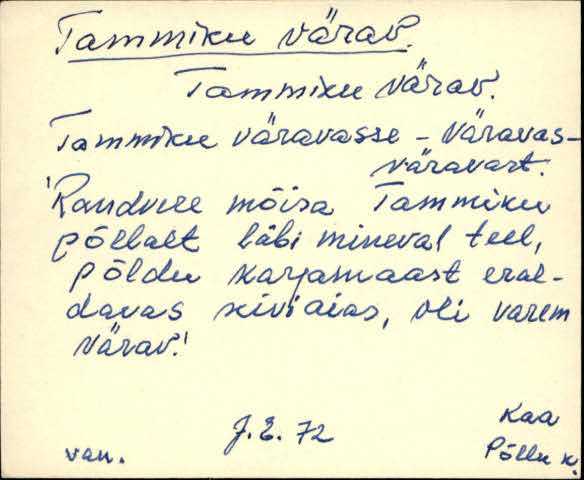 Tammiku värav.
Tammiku värav.
Tammiku väravasse – väravas –
väravast.
'Randvere mõisa Tammiku
põllalt läbi mineval teel,
põldu karjamaast eral-
davas kiviaias, oli varem
värav.'
J. E. 72
Kaa
van.
Põllu k.